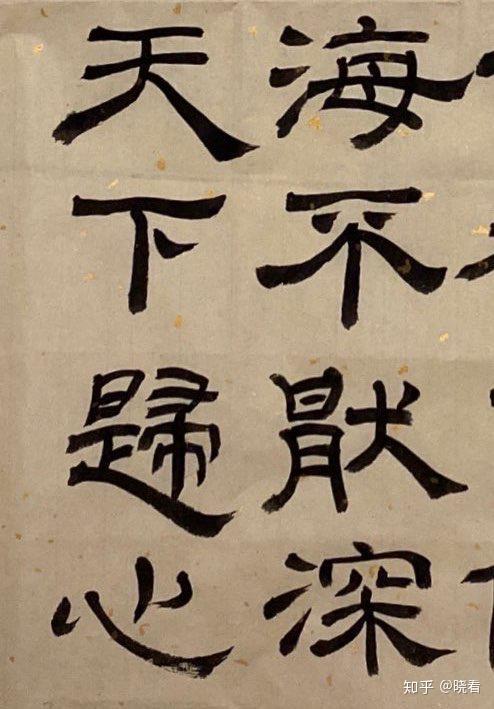 海不猒深
天下歸心
知乎 @晓看